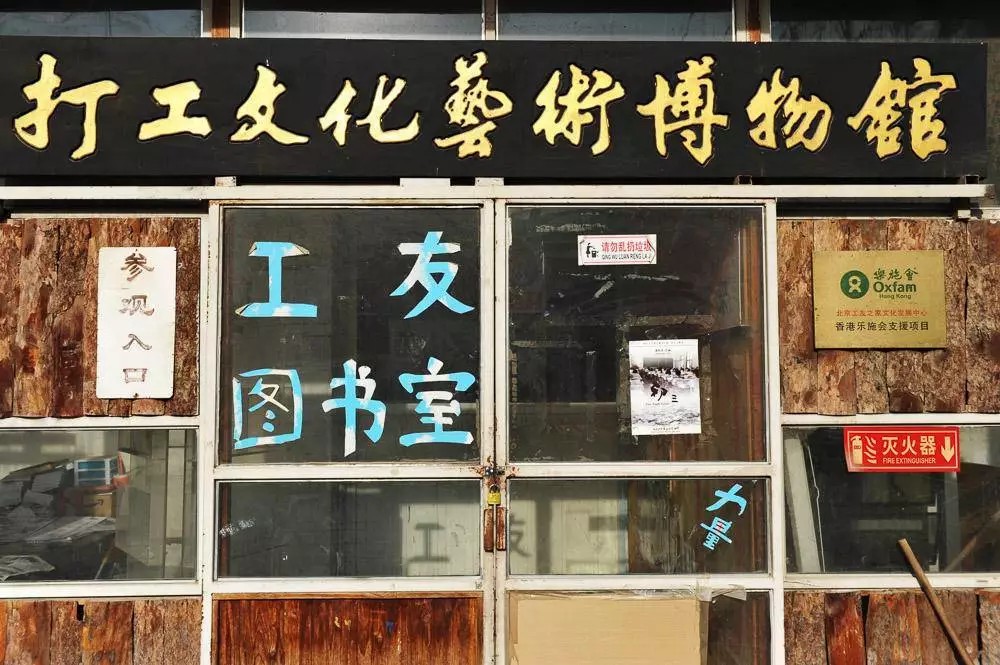 打工文化藝術博物館
参观入口
工友
图书室
请勿乱扔垃圾
QING WU LUAN RENG LA JI
樂施會
Oxfam
Hong Kong
北京工友之家文化发展中心
香港乐施会支援项目
灭火器
FIRE EXTINGUISHER
力量
工友